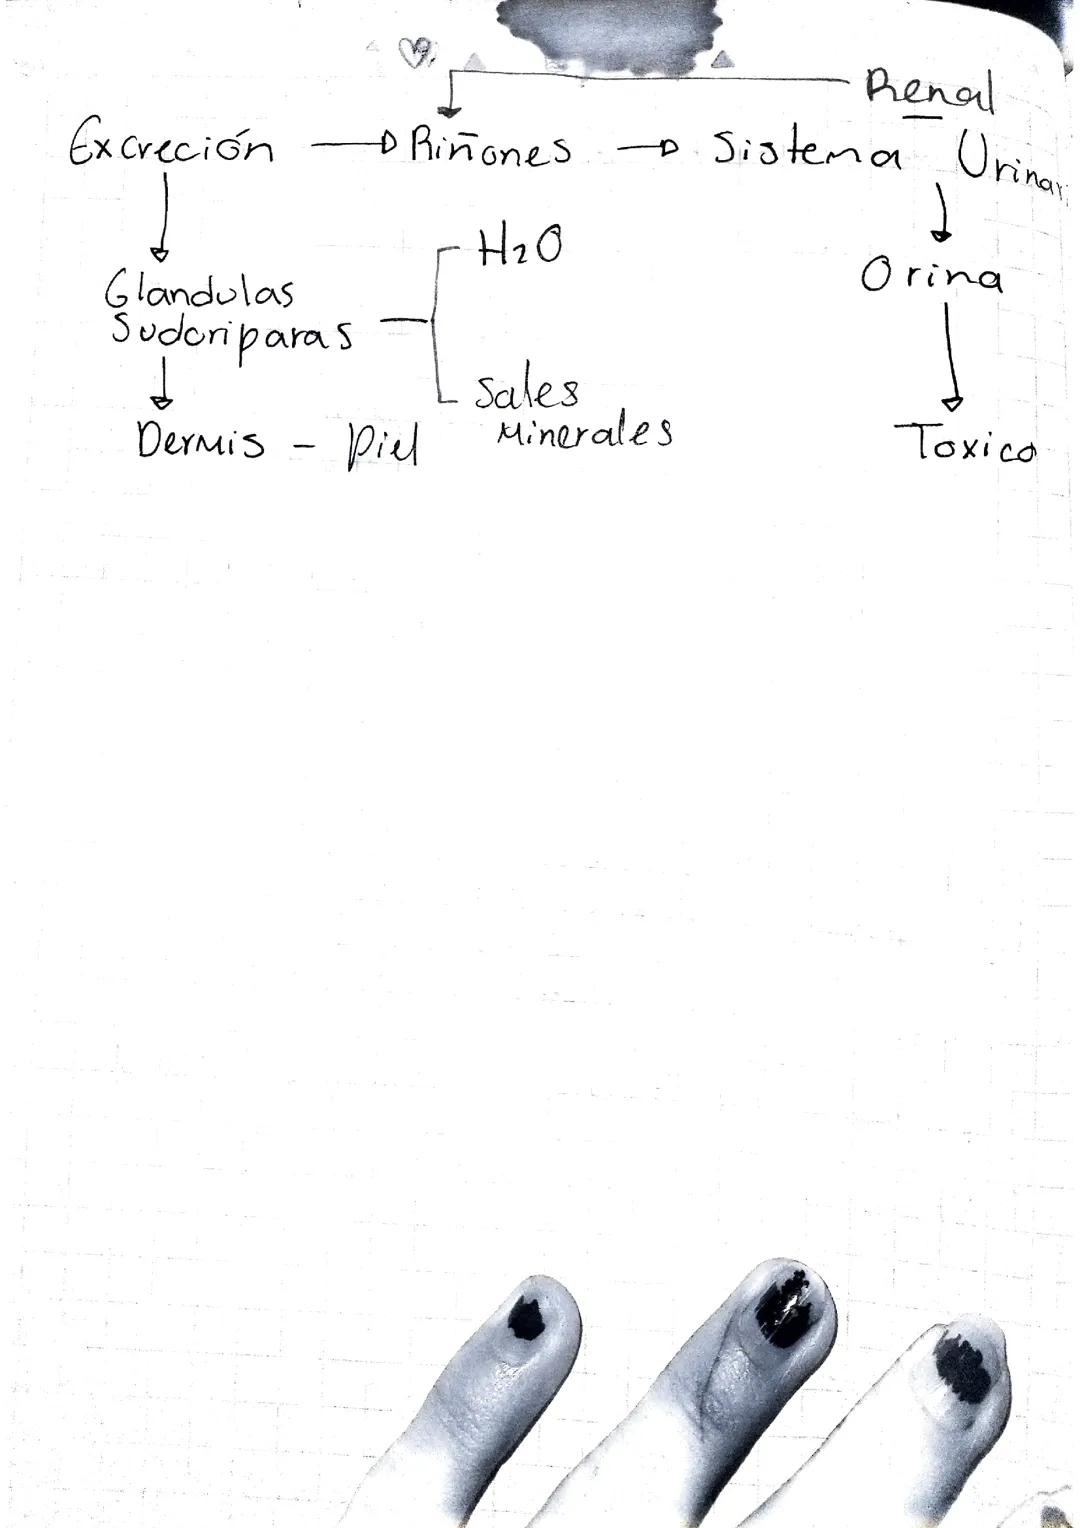 Renal
Excreción → Riñones → Sistema Urinar
H2O
Orina
Glandulas
Sudoriparas
Sales
Minerales
Dermis - Piel
Toxico